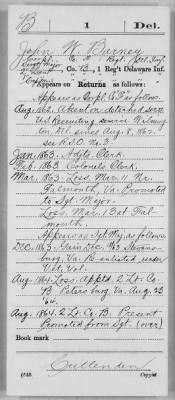 B 1 Del.
John W. Barney
Co. B, 1 Reg't Delaware Inf.
Appears on Returns as follows:
Appears as Corpl. Co. F as follows.
Aug. 1862. Absent on detached service
Recruiting service Wilming-
ton, Del. since Aug. 8, 1862.
see R.S.O. No. 3
Jan. 1863. Adjts Clerk
Feb. 1863 Colonel's Clerk
Mar. 1863 Loss, Mar. 11 Nr.
Falmouth, Va. Promoted
to Sgt. Major.
Loss, Mar. 1 3 at Fal-
mouth.
Appears as Sgt. Maj. as follows
Dec. 1863. Gain Dec. Stevens-
burg, Va. Re-enlisted under
Vet. Vol.
Aug. 1864 Loss, Appt'd 2 Lt. Co.
B Petersburg, Va. Aug. 23
'64.
Aug. 1864. 2 Lt. Co. B. Present
Promoted from Sgt. (over)
Book mark
Cullenden
(546) Copyist.